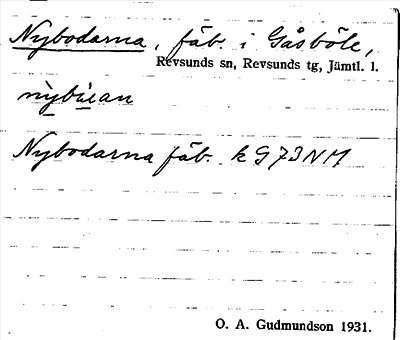 Nybodarna, fäb. i Gåsböle,
Revsunds sn, Revsunds tg, Jämtl. l.
Nybodarna fäb. k G73NM
O. A. Gudmundson 1931.